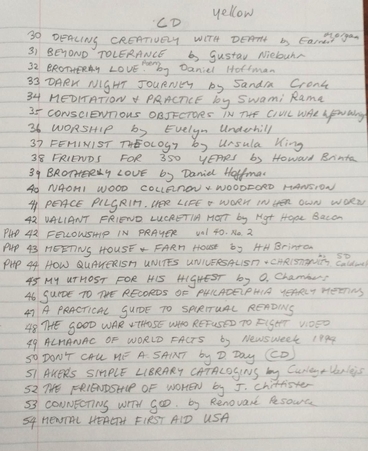 yellow
CD
30 DEALING CREATIVELY WITH DEATH by Earnest Morgan
31 BEYOND TOLERANCE by Gustav Niebuhr
32 BROTHERLY LOVE Poems by Daniel Hoffman
33 DARK NIGHT JOURNEY by Sandra Cronk
34 MEDITATION & PRACTICE by Swami Rama
35 CONSCIENTIOUS OBJECTORS IN THE CIVIL WAR by EN Wright
36 WORSHIP by Evelyn Underhill
37 FEMINIST THEOLOGY by Ursula King
38 FRIENDS FOR 350 YEARS by Howard Brinton
39 BROTHERLY LOVE by Daniel Hoffman
40 NAOMI WOOD COLLECTION & WOODFORD MANSION
41 PEACE PILGRIM, HER LIFE & WORK IN HER OWN WORDS
42 VALIANT FRIEND LUCRETIA MOTT by Mgt Hope Bacon
PHP 42 FELLOWSHIP IN PRAYER vol 40. No. 2
PHP 43 MEETING HOUSE & FARM HOUSE by HH Brinton
PHP 44 HOW QUAKERISM UNITES UNIVERSALISM & CHRISTIANITY by SD Caldwell
45 MY UTMOST FOR HIS HIGHEST by O. Chambers
46 GUIDE TO THE RECORDS OF PHILADELPHIA YEARLY MEETING
47 A PRACTICAL GUIDE TO SPIRITUAL READING
48 THE GOOD WAR & THOSE WHO REFUSED TO FIGHT VIDEO
49 ALMANAC OF WORLD FACTS by NEWSWEEK
50 DON'T CALL ME A SAINT by D Day (CD)
51 AKERS SIMPLE LIBRARY CATALOGING by Curley & Varlejs
52 THE FRIENDSHIP OF WOMEN by J. Chittister
53 CONNECTING WITH GOD. by Renovaré Resource
54 MENTAL HEALTH FIRST AID USA